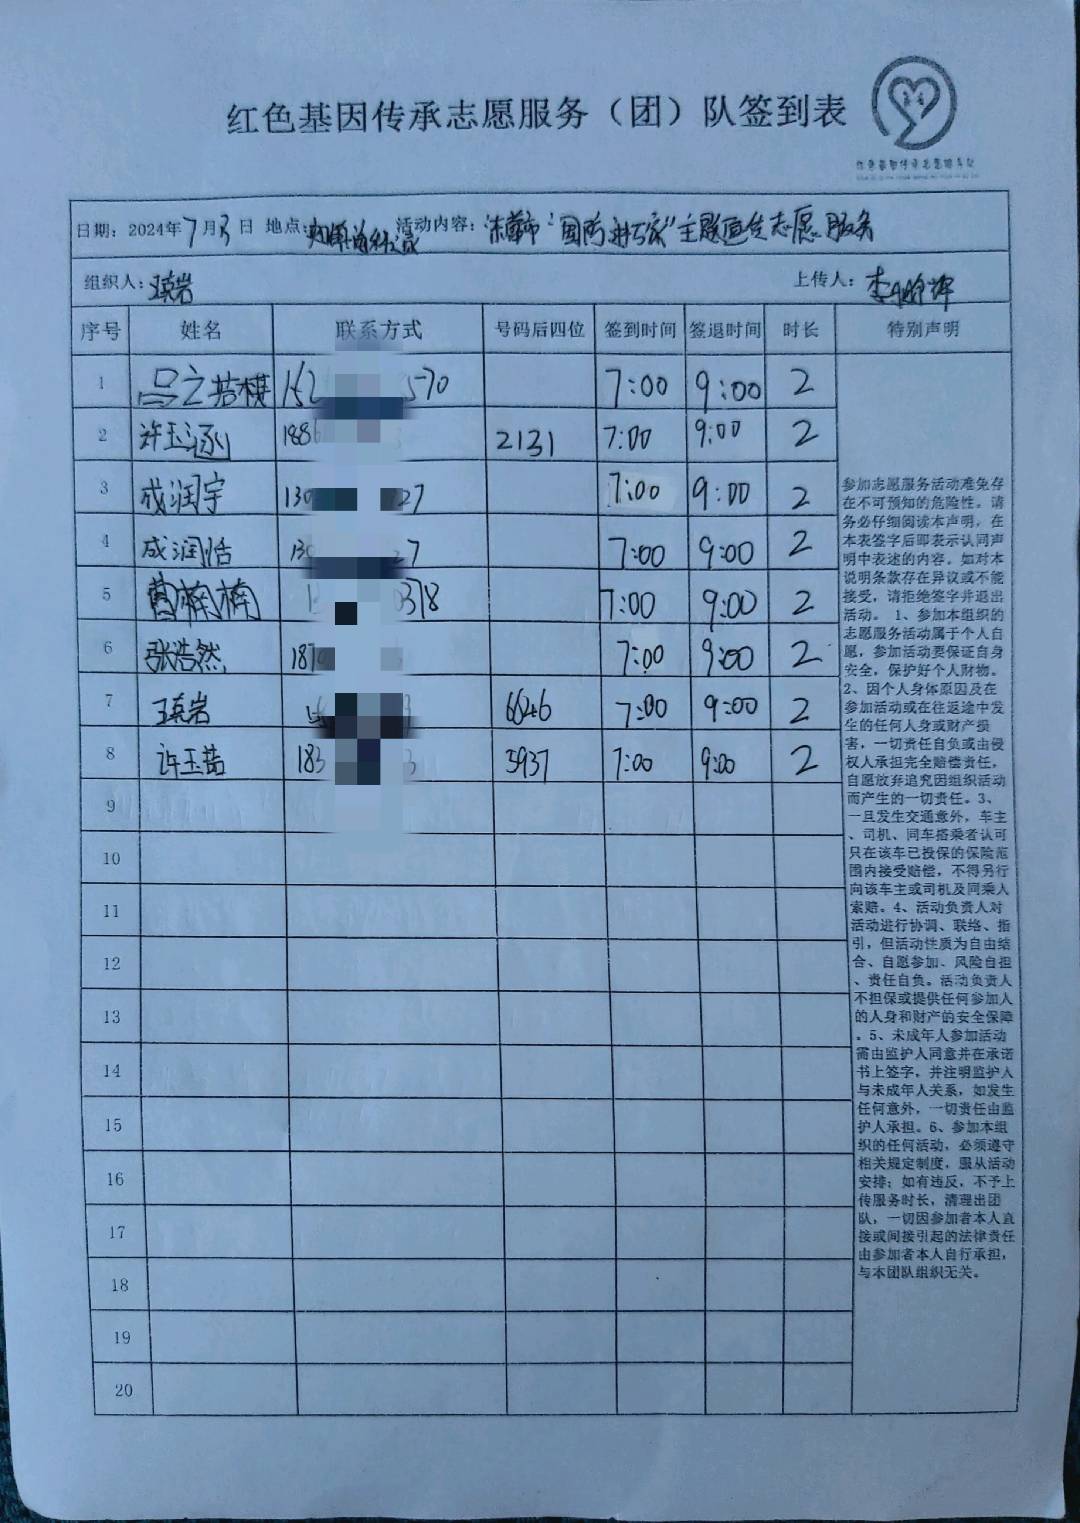 红色基因传承志愿服务（团）队签到表
红色基因传承志愿服务队
日期：2024年7月3日 地点： 活动内容： "国防 万家"主题宣传志愿服务
组织人： 上传人：
序号 姓名 联系方式 号码后四位 签到时间 签退时间 时长 特别声明
1 152 570 7:00 9:00 2
2 许玉涵 188 2131 7:00 9:00 2
3 成润宇 130 27 7:00 9:00 2
4 成润恬 130 7 7:00 9:00 2
5 曹楠楠 378 7:00 9:00 2
6 张浩然 187 7:00 9:00 2
7 3 6646 7:00 9:00 2
8 许玉茹 183 3 5937 7:00 9:00 2
9
10
11
12
13
14
15
16
17
18
19
20
参加志愿服务活动难免存
在不可预知的危险性。请
务必仔细阅读本声明，在
本表签字后即表示认同声
明中表述的内容。如对本
说明条款存在异议或不能
接受，请拒绝签字并退出
活动。1、参加本组织的
志愿服务活动属于个人自
愿，参加活动要保证自身
安全，保护好个人财物。
2、因个人身体原因及在
参加活动或在往返途中发
生的任何人身或财产损
害，一切责任自负或由侵
权人承担完全赔偿责任，
自愿放弃追究因组织活动
而产生的一切责任。3、
一旦发生交通意外，车主
、司机、同车搭乘者认可
只在该车已投保的保险范
围内接受赔偿，不得另行
向该车主或司机及同乘人
索赔。4、活动负责人对
活动进行协调、联络、指
引，但活动性质为自由结
合、自愿参加、风险自担
、责任自负。活动负责人
不担保或提供任何参加人
的人身和财产的安全保障
。5、未成年人参加活动
需由监护人同意并在承诺
书上签字，并注明监护人
与未成年人关系，如发生
任何意外，一切责任由监
护人承担。6、参加本组
织的任何活动，必须遵守
相关规定制度，服从活动
安排；如有违反，不予上
传服务时长，清理出团
队，一切因参加者本人直
接或间接引起的法律责任
由参加者本人自行承担，
与本团队组织无关。